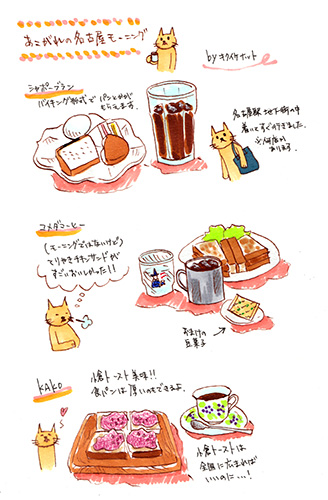 あこがれの名古屋モーニング
by キクイケホット
シャポーブラン
バイキング形式で パンとかが
もらえます。
名古屋駅 地下街の中
着いてすぐ行きました。
何店か
あります。
コメダコーヒー
(モーニングではないけど)
てりやきチキンサンドが
すごいおいしかった!!
おまけの
豆菓子
KAKO
小倉トースト美味!!
食パンは厚いのもできるよ。
小倉トーストは
全国に広まれば
いいのに…!